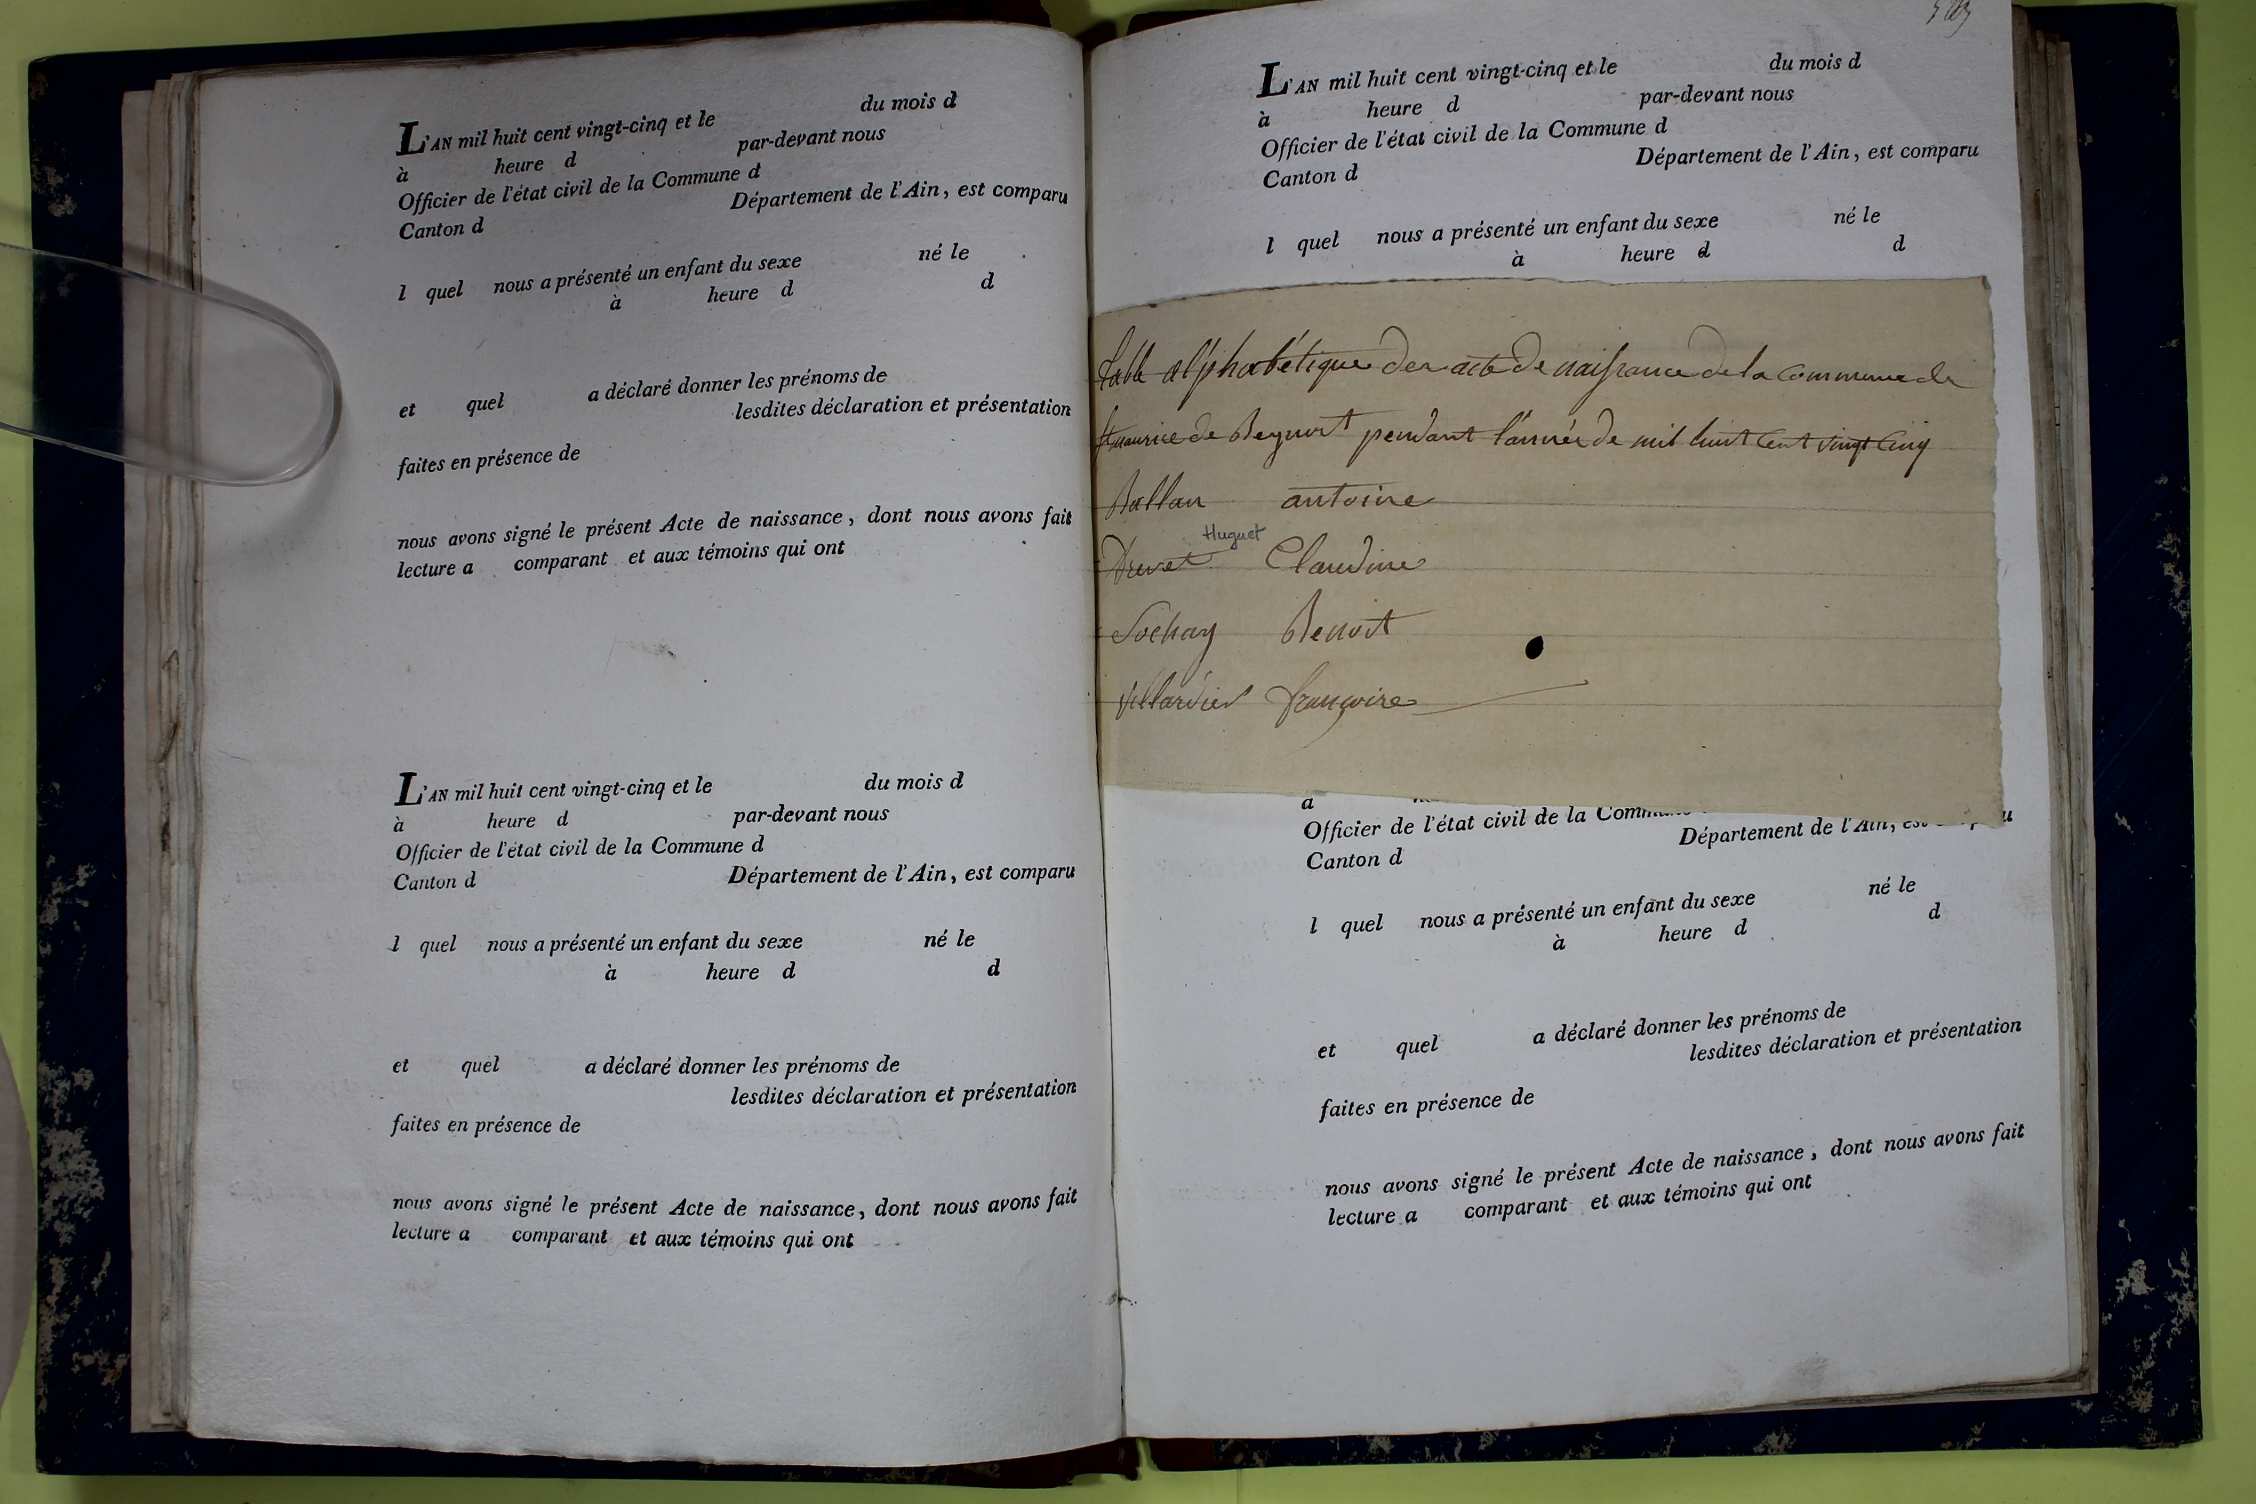 L'AN mil huit cent vingt-cinq et le du mois d
à heure d par-devant nous
Officier de l'état civil de la Commune d
Canton d Département de l'Ain, est comparu
l quel nous a présenté un enfant du sexe né le
à heure d d
et quel a déclaré donner les prénoms de
lesdites déclaration et présentation
faites en présence de
nous avons signé le présent Acte de naissance, dont nous avons fait
lecture a comparant et aux témoins qui ont
L'AN mil huit cent vingt-cinq et le du mois d
à heure d par-devant nous
Officier de l'état civil de la Commune d
Canton d Département de l'Ain, est comparu
l quel nous a présenté un enfant du sexe né le
à heure d d
et quel a déclaré donner les prénoms de
lesdites déclaration et présentation
faites en présence de
nous avons signé le présent Acte de naissance, dont nous avons fait
lecture a comparant et aux témoins qui ont
L'AN mil huit cent vingt-cinq et le du mois d
à heure d par-devant nous
Officier de l'état civil de la Commune d
Canton d Département de l'Ain, est comparu
l quel nous a présenté un enfant du sexe né le
à heure d d
Table alphabétique des acte de naissance de la commune de
St maurice de Beynost pendant l'année de mil huit cent vingt cinq
Ballan antoine
Huguet
Drevet Claudine
Sochay Benoit
Villardier françoise
à
Officier de l'état civil de la Commune
Canton d Département de l'Ain, est
l quel nous a présenté un enfant du sexe né le
à heure d d
et quel a déclaré donner les prénoms de
lesdites déclaration et présentation
faites en présence de
nous avons signé le présent Acte de naissance, dont nous avons fait
lecture a comparant et aux témoins qui ont